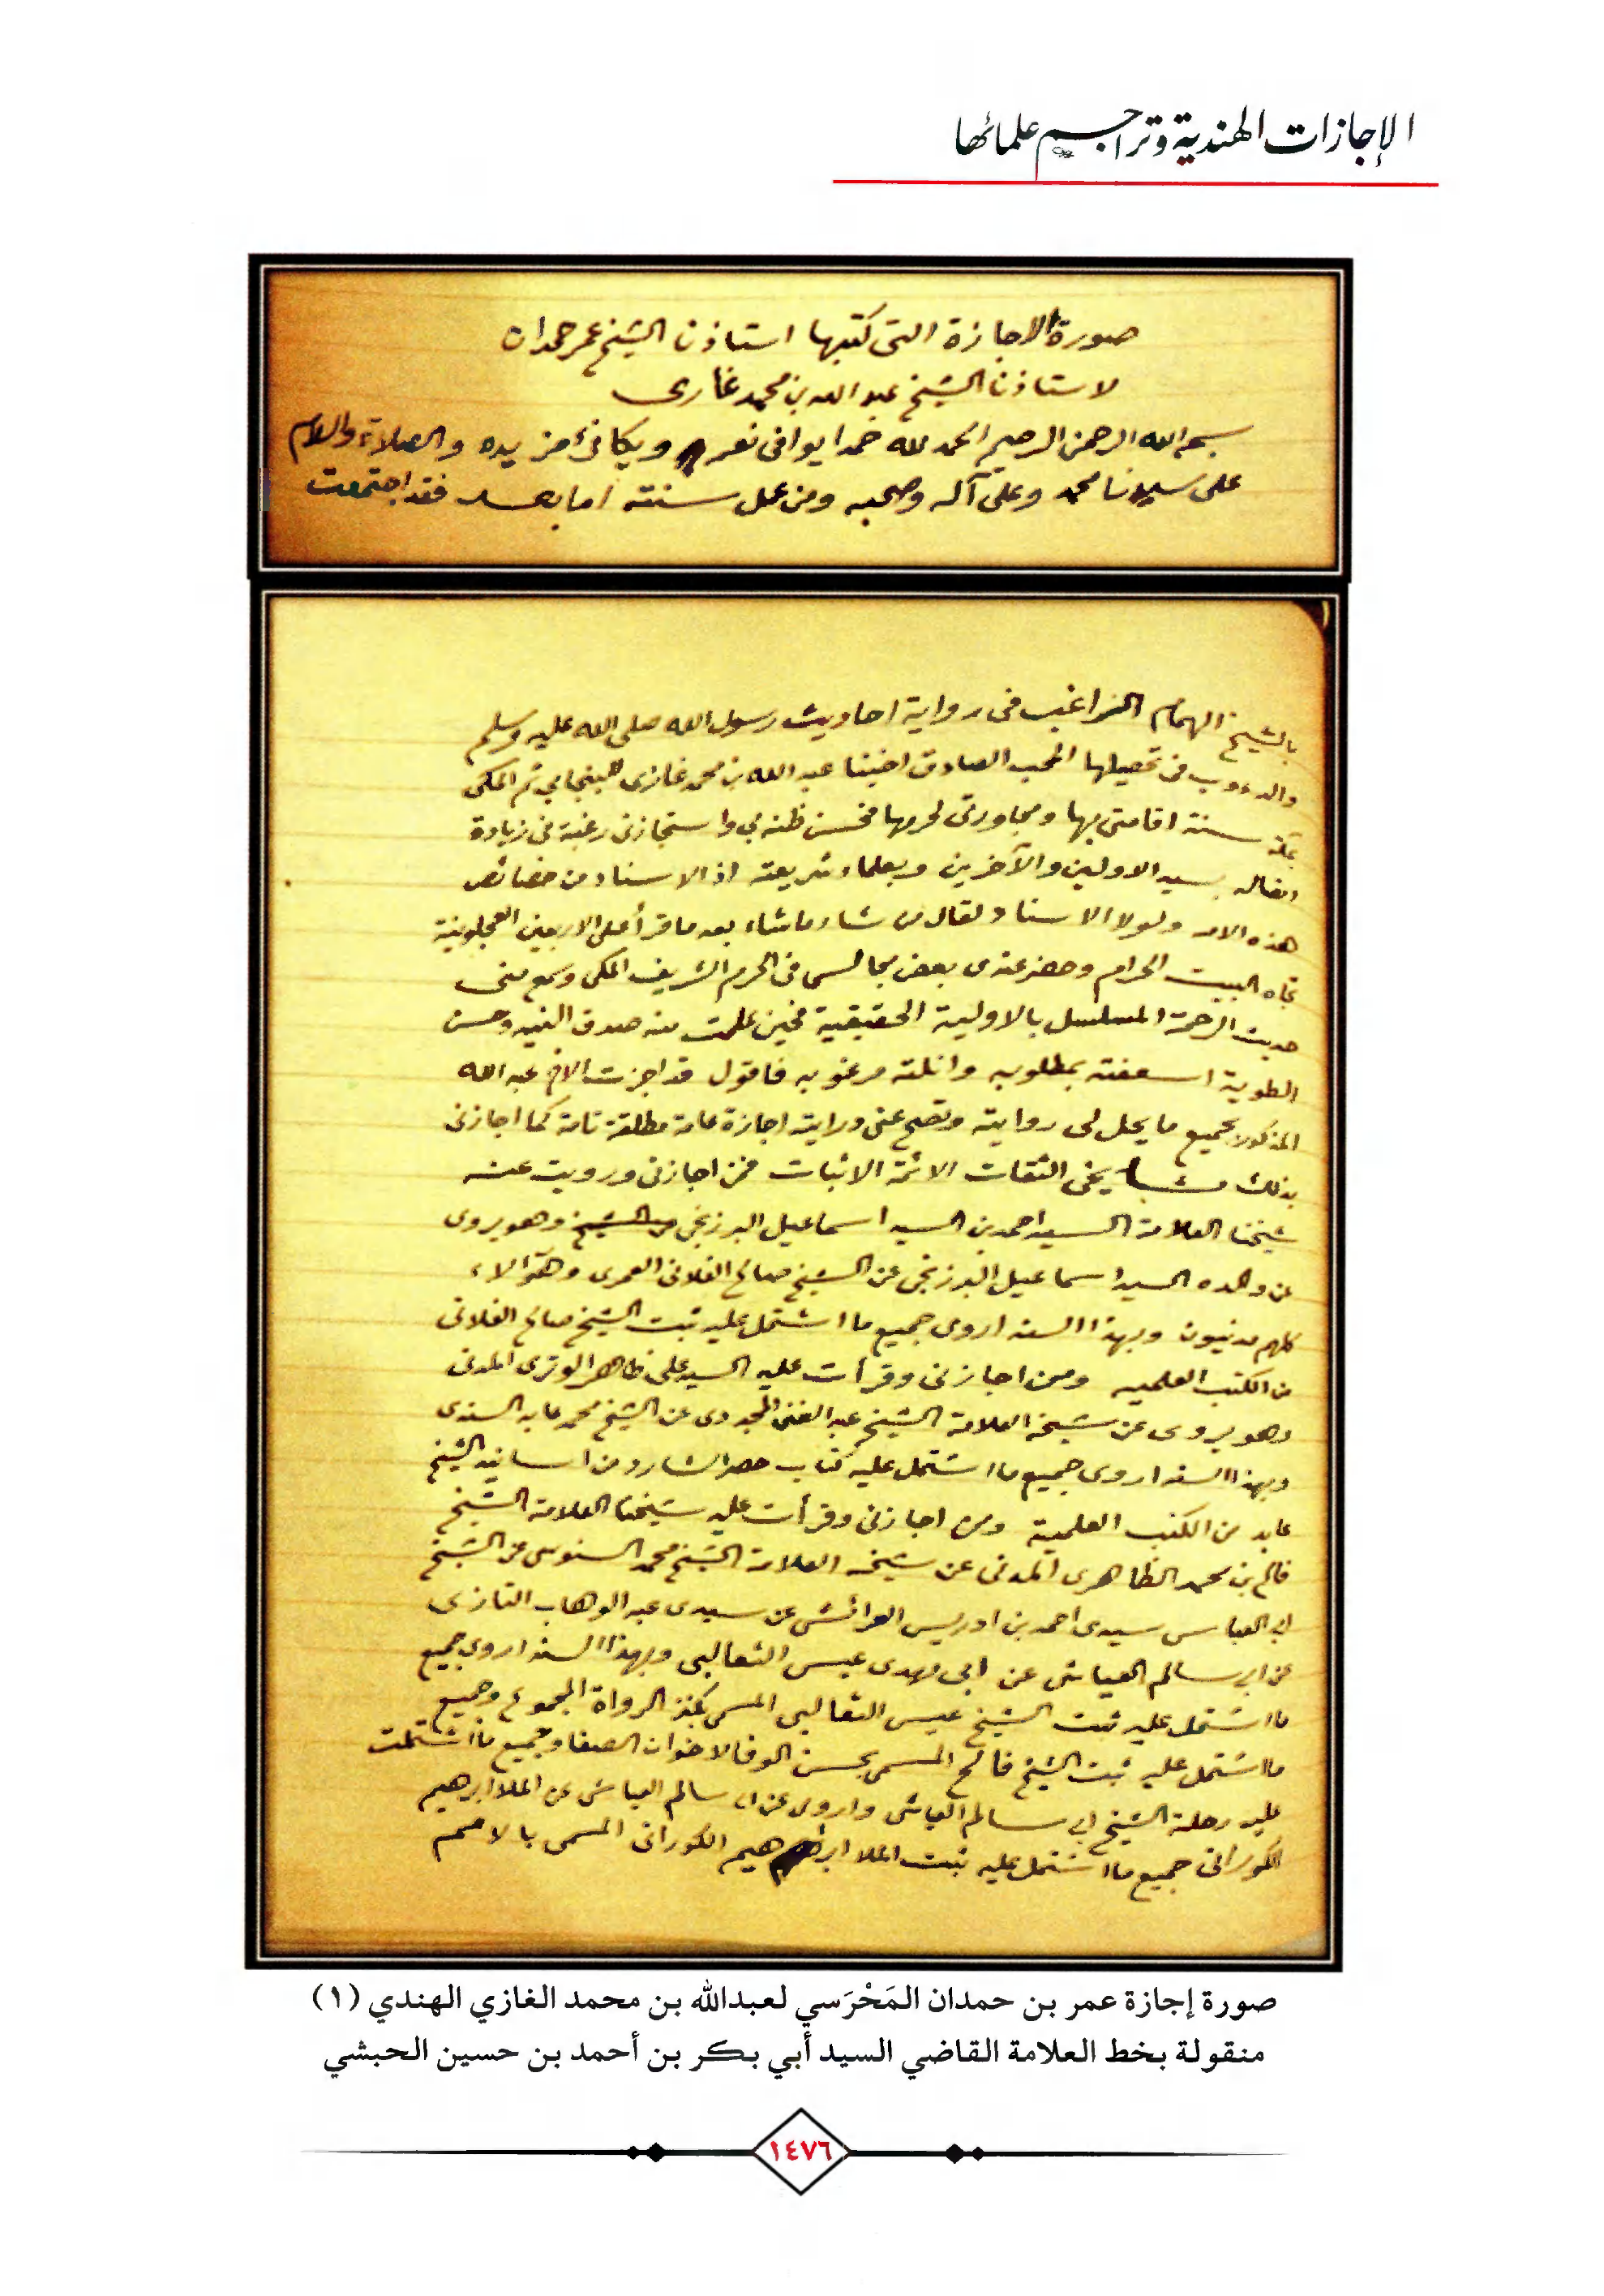 الإجازات الهندية وتراجم علمائها
صورة الاجازة التى كتبها استاذنا الشيخ عمر حمدان
لاستاذنا الشيخ عبد الله بن محمد غازى
بسم الله الرحمن الرحيم الحمد لله حمدا يوافى نعمه ويكافئ مزيده والصلاة والسلام
على سيدنا محمد وعلى آله وصحبه ومن عمل سنته اما بعد فقد اجتمعت
بالشيخ الهمام الراغب فى رواية احاديث رسول الله صلى الله عليه وسلم
والدءوب فى تحصيلها المحب الصادق اخينا عبد الله بن محمد غازى البنجابي ثم المكى
بمكة سنة اقامتى بها ومجاورتى لحرمها فحسن ظنه بي واستجازنى رغبة فى زيادة
اتصاله بسيد الاولين والآخرين وبعلماء شريعته اذ الاسناد من خصائص
هذه الامة ولولا الاسناد لقال من شاء ماشاء بعد ما قرأ على الاربعين العجلونية
تجاه البيت الحرام وحضر عندى بعض مجالسى فى الحرم الشريف المكى وسمع منى
حديث الرحمة المسلسل بالاولية الحقيقية فحين علمت منه صدق النيه وحسن
الطوية اسعفته بمطلوبه وانلته مرغوبه فاقول قد اجزت الاخ عبد الله
المذكور بجميع ما يحل لى روايته وتصح عنى درايته اجازة عامة مطلقة تامة كما اجازنى
بذلك مشايخى الثقات الائمة الاثبات فمن اجازنى ورويت عنه
شيخنا العلامة السيد احمد بن السيد اسماعيل البرزنجى وهو يروى
عن والده السيد اسماعيل البرزنجى عن الشيخ صالح الفلانى العمرى وهؤلاء
كلهم مدنيون وبهذا السند اروى جميع ما اشتمل عليه ثبت الشيخ صالح الفلانى
من الكتب العلميه وممن اجازنى وقرأت عليه السيد على ظاهر الوترى المدنى
وهو يروى عن شيخه العلامة الشيخ عبد الغنى المجددى عن الشيخ محمد عابد السندى
وبهذا السند اروى جميع ما اشتمل عليه كتاب حصر الشارد من اسانيد الشيخ
عابد من الكتب العلمية ومن اجازنى وقرأت عليه شيخنا العلامة الشيخ
فالح بن محمد الظاهرى المدنى عن شيخه العلامة الشيخ محمد السنوسى عن الشيخ
ابي العباس سيدى احمد بن ادريس العرائشى عن سيدى عبد الوهاب التازى
عن ابي سالم العياشى عن ابى مهدى عيسى الثعالبى وبهذا السند اروى جميع
ما اشتمل عليه ثبت الشيخ عيسى الثعالبى المسمى بكنز الرواة المجموع وجميع
ما اشتمل عليه ثبت الشيخ فالح المسمى بحسن الوفا لاخوان الصفا وجميع ما اشتملت
عليه رحلة الشيخ ابي سالم العياشى واروى عن ابي سالم العياشى عن الملا ابرهيم
الكورانى جميع ما اشتمل عليه ثبت الملا ابرهيم الكورانى المسمى بالامم
صورة إجازة عمر بن حمدان المَحْرَسي لعبدالله بن محمد الغازي الهندي (١)
منقولة بخط العلامة القاضي السيد أبي بكر بن أحمد بن حسين الحبشي
١٤٧٦